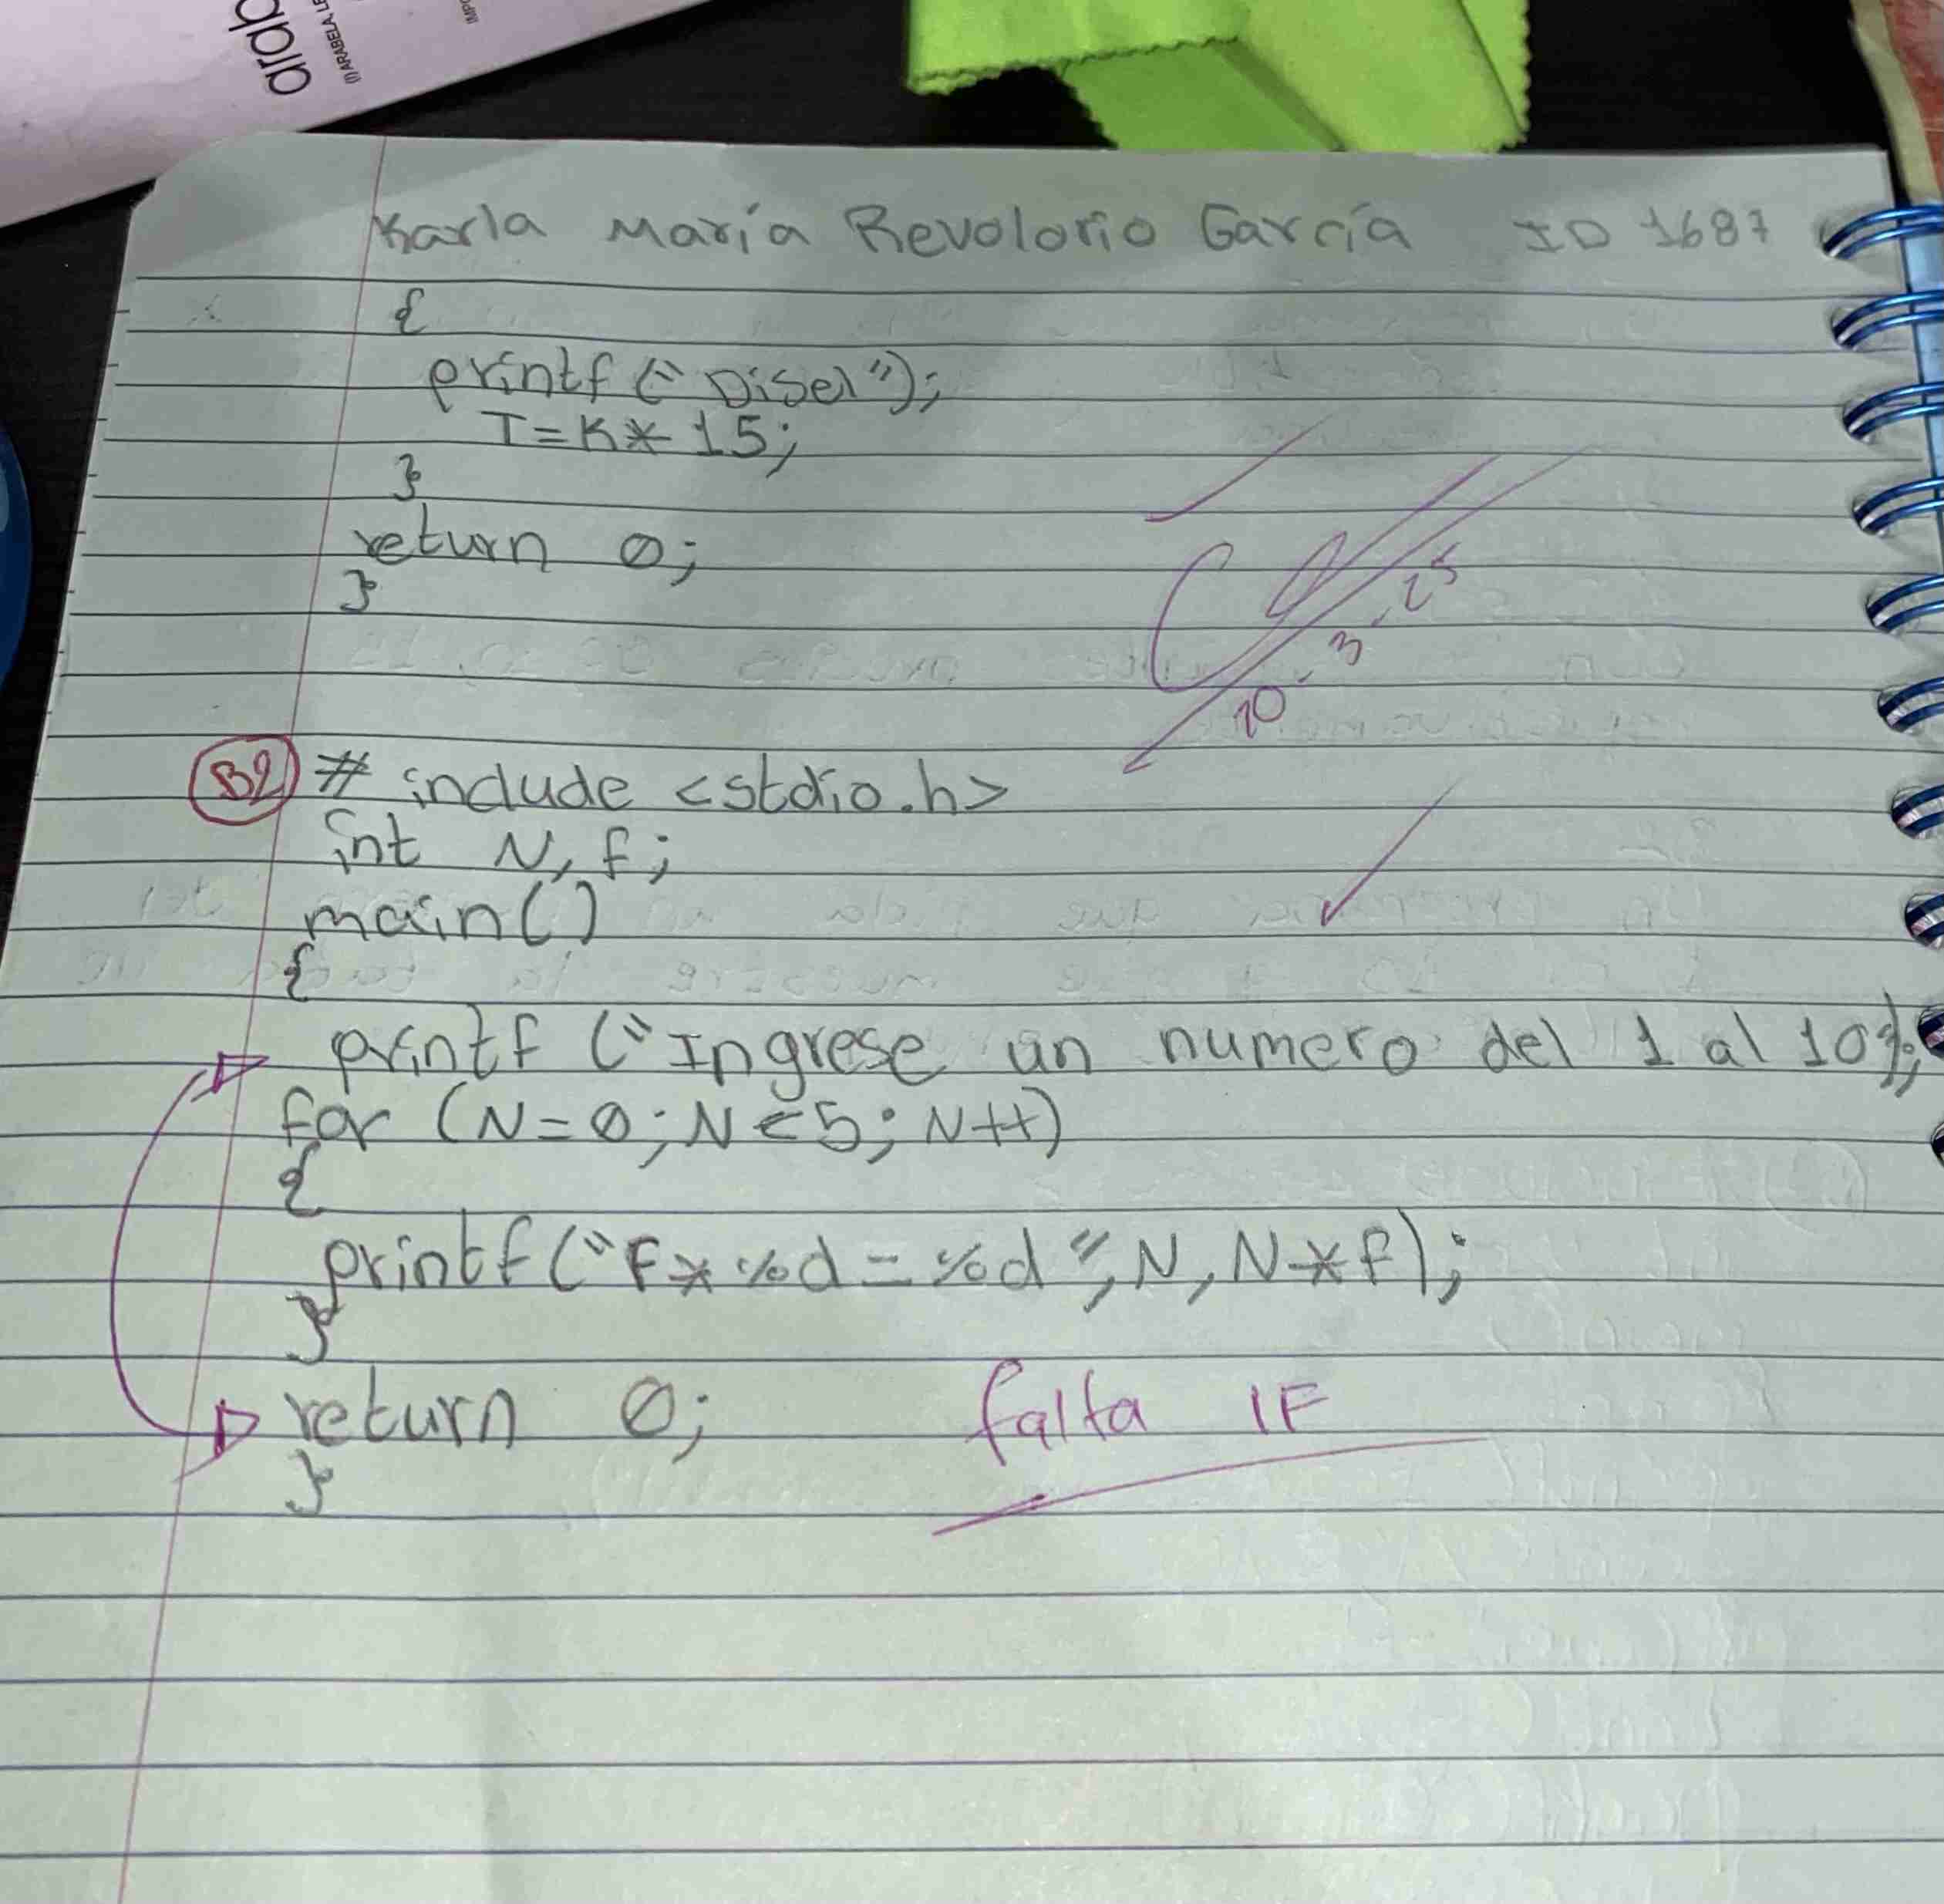 arab
(I) ARABELA, LE
IMPO
Karla María Revolorio García ID 1687
{
printf ("Disel");
T=K*15;
}
return 0;
}
10-3-25
B2 # include <stdio.h>
int N, f;
main()
{
printf ("Ingrese un numero del 1 al 10");
for (N=0; N<5; N++)
{
printf("F*%d=%d", N, N*f);
}
return 0; falta IF
}